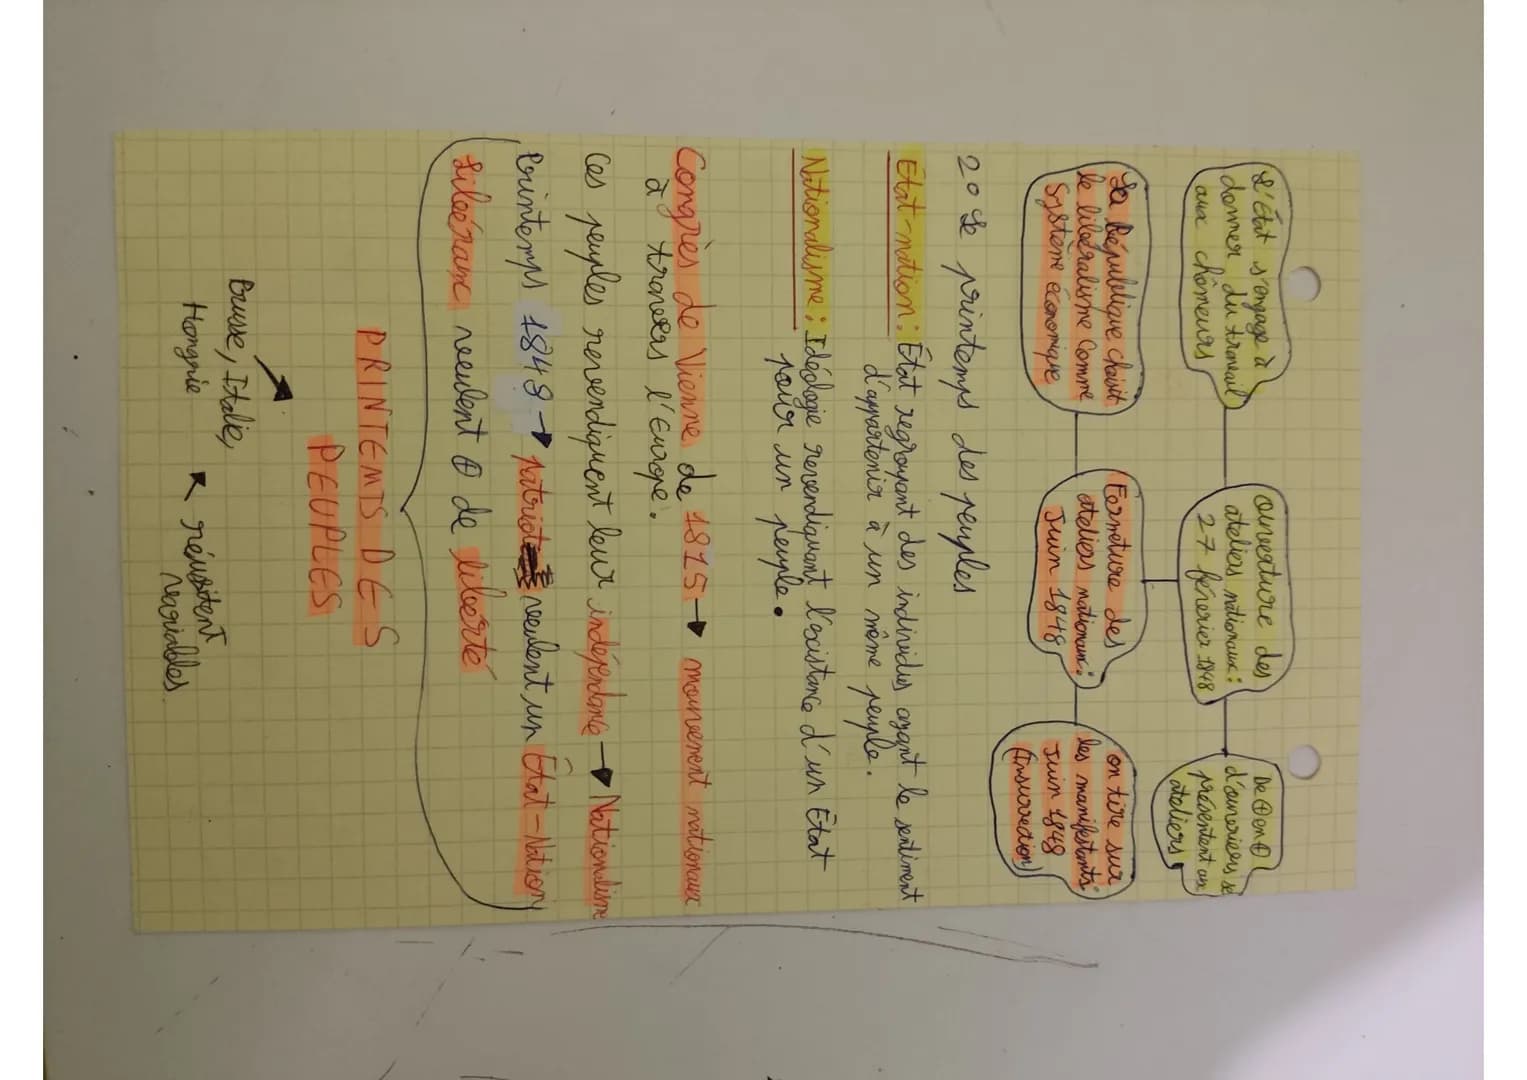 L'État s'engage à
donner du travail
aux chômeurs
ouverture des
ateliers nationaux :
27 février 1848
De ⊕ en ⊕
d'ouvriers se
présentent aux
ateliers
La République choisit
le libéralisme comme
système économique
Fermeture des
ateliers nationaux :
Juin 1848
on tire sur
les manifestants
Juin 1848
(insurrection)
2° Le printemps des peuples
État-nation : État regroupant des individus ayant le sentiment
d'appartenir à un même peuple.
Nationalisme : Idéologie revendiquant l'existance d'un État
pour un peuple.
Congrès de Vienne de 1815 → mouvement nationaux
à travers l'Europe.
Ces peuples revendiquent leur indépendance → Nationalisme
Printemps 1848 → patriot veulent un État-Nation
Libéraux veulent ⊕ de liberté
PRINTEMPS DES
PEUPLES
Prusse, Italie,
Hongrie
résultent
variables